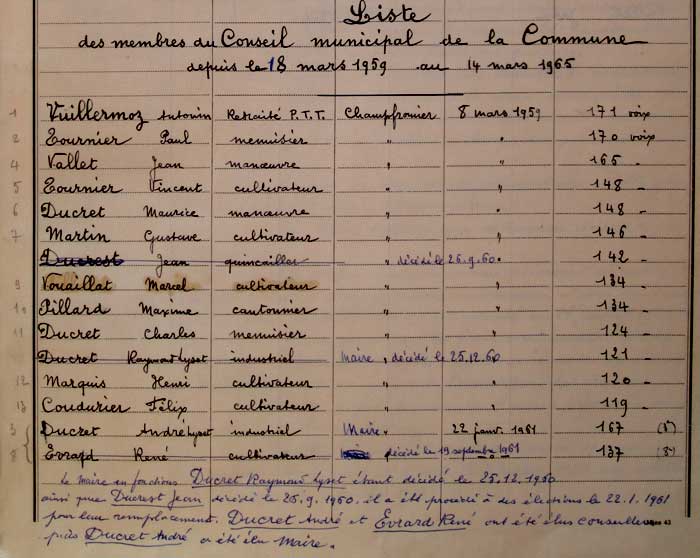 Liste
des membres du Conseil municipal de la Commune
depuis le 18 mars 1959 au 14 mars 1965
1 Vuillermoz Antonin Retraité P.T.T. Champfromier 8 mars 1959 171 voix
2 Tournier Paul menuisier " " 170 voix
4 Vallet Jean manœuvre " " 165 -
5 Tournier Vincent cultivateur " " 148 -
6 Ducret Maurice manœuvre " " 148 -
7 Martin Gustave cultivateur " " 146 -
Ducrest Jean quincailler " décédé le 26.9.60 " 142 -
9 Vouaillat Marcel cultivateur " " 134 -
10 Pillard Maxime cantonnier " " 134 -
11 Ducret Charles menuisier " " 124 -
Ducret Raymond Lyset industriel Maire " décédé le 25.12.60 121 -
12 Marquis Henri cultivateur " " 120 -
13 Coudurier Félix cultivateur " " 119 -
3 Ducret André Lyset industriel Maire " 22 janv. 1961 167
8 Evrard René cultivateur décédé le 19 septembre 1961 137
Le Maire en fonctions Ducret Raymond Lyset étant décédé le 25.12.1960
ainsi que Ducrest Jean décédé le 26.9.1960. il a été procédé à des élections le 22.1.1961
pour leur remplacement. Ducret André et Evrard René ont été élus conseillers
puis Ducret André a été élu Maire.